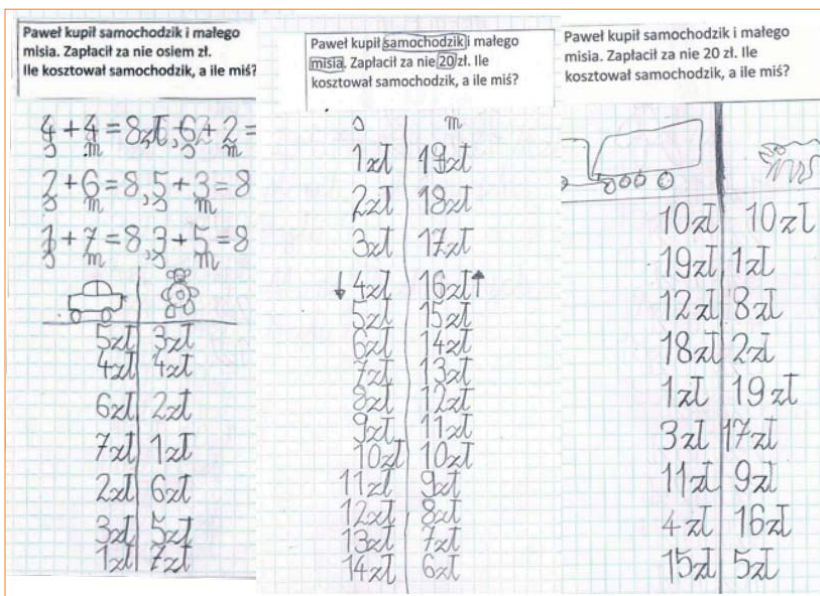 Paweł kupił samochodzik i małego
misia. Zapłacił za nie osiem zł.
Ile kosztował samochodzik, a ile miś?
4 + 4 = 8zł, 6 + 2 =
s m s
2 + 6 = 8, 5 + 3 = 8
s m s m
1 + 7 = 8, 3 + 5 = 8
s m s m
5zł 3zł
4zł 4zł
6zł 2zł
7zł 1zł
2zł 6zł
3zł 5zł
1zł 7zł
Paweł kupił samochodzik i małego
misia. Zapłacił za nie 20 zł. Ile
kosztował samochodzik, a ile miś?
s m
1zł 19zł
2zł 18zł
3zł 17zł
↓ 4zł 16zł ↑
5zł 15zł
6zł 14zł
7zł 13zł
8zł 12zł
9zł 11zł
10zł 10zł
11zł 9zł
12zł 8zł
13zł 7zł
14zł 6zł
Paweł kupił samochodzik i małego
misia. Zapłacił za nie 20 zł. Ile
kosztował samochodzik, a ile miś?
10zł 10zł
19zł 1zł
12zł 8zł
18zł 2zł
1zł 19zł
3zł 17zł
11zł 9zł
4zł 16zł
15zł 5zł